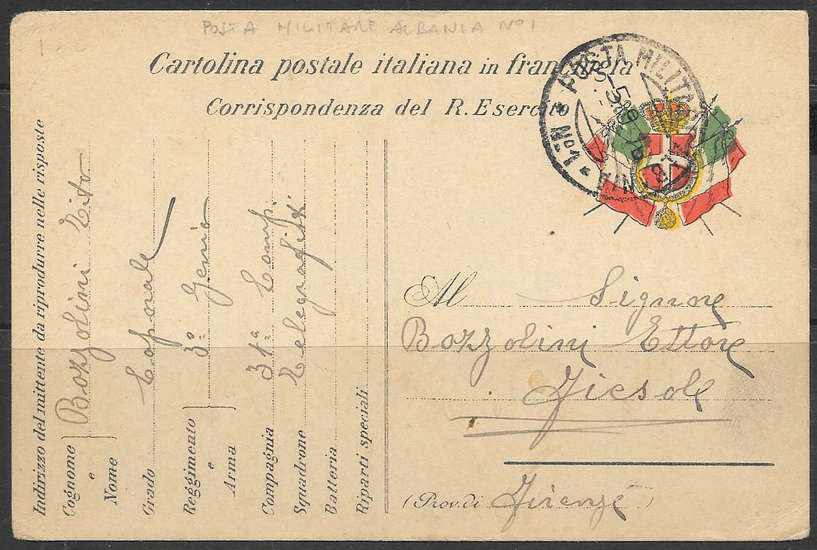 POSTA MILITARE ALBANIA Nº 1
Cartolina postale italiana in franchigia
Corrispondenza del R. Esercito
POSTA MILITARE
Nº 1
Indirizzo del mittente da riprodurre nelle risposte
Cognome e Nome Bozzolini Tito
Grado Caporale
Reggimento e Arma 3º Genio
Compagnia 31ª Comp.
Squadrone Telegrafisti
Batteria
Riparti speciali
Al Signore
Bozzolini Ettore
Fiesole
(Prov. di Firenze)